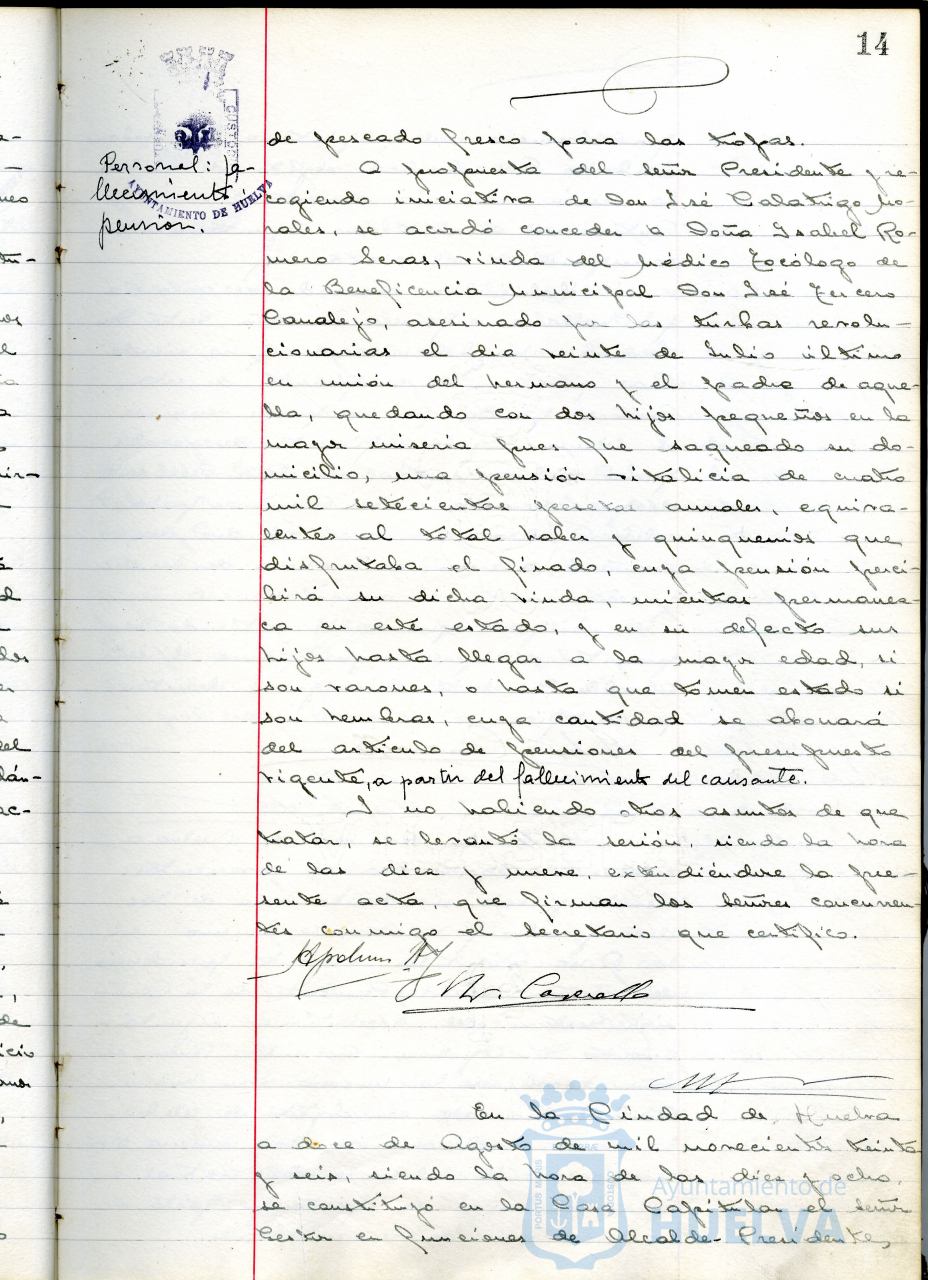 14
de pescado fresco para las tropas.
Personal: fa-
llecimiento;
pensión.
AYUNTAMIENTO DE HUELVA
A propuesta del señor Presidente re-
cogiendo iniciativa de Don José Calatrigo Mo-
rales, se acordó conceder a Doña Isabel Ro-
mero Seras, viuda del Médico Tocólogo de
la Beneficencia Municipal Don José Tercero
Canalejo, asesinado por las turbas revolu-
cionarias el día veinte de Julio último
en unión del hermano y el padre de aque-
lla, quedando con dos hijos pequeños en la
mayor miseria pues fue saqueado su do-
micilio, una pensión vitalicia de cuatro
mil setecientas pesetas anuales, equiva-
lentes al total haber y quinquenios que
disfrutaba el finado, cuya pensión perci-
birá su dicha viuda, mientras permanez-
ca en este estado, y en su defecto sus
hijos hasta llegar a la mayor edad, si
son varones, o hasta que tomen estado si
son hembras, cuya cantidad se abonará
del artículo de pensiones del presupuesto
vigente, a partir del fallecimiento del causante.
Y no habiendo otros asuntos de que
tratar, se levantó la sesión, siendo la hora
de las diez y nueve, extendiéndose la pre-
sente acta, que firman los señores concurren-
tes conmigo el secretario que certifico.
En la Ciudad de Huelva
a doce de Agosto de mil novecientos treinta
y seis, siendo la hora de las diez y ocho,
se constituyó en la Casa Capitular el señor
Gestor en funciones de Alcalde-Presidente,
Ayuntamiento de
HUELVA